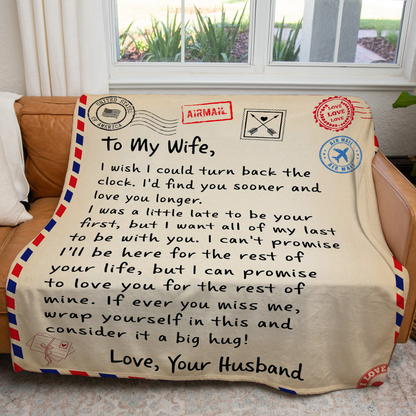 UNITED STATES
OF AMERICA
AIRMAIL
LOVE
LOVE
LOVE
AIR MAIL
AIR MAIL
To My Wife,
I wish I could turn back the
clock. I'd find you sooner and
love you longer.
I was a little late to be your
first, but I want all of my last
to be with you. I can't promise
I'll be here for the rest of
your life, but I can promise
to love you for the rest of
mine. If ever you miss me,
wrap yourself in this and
consider it a big hug!
Love, Your Husband
LOVE